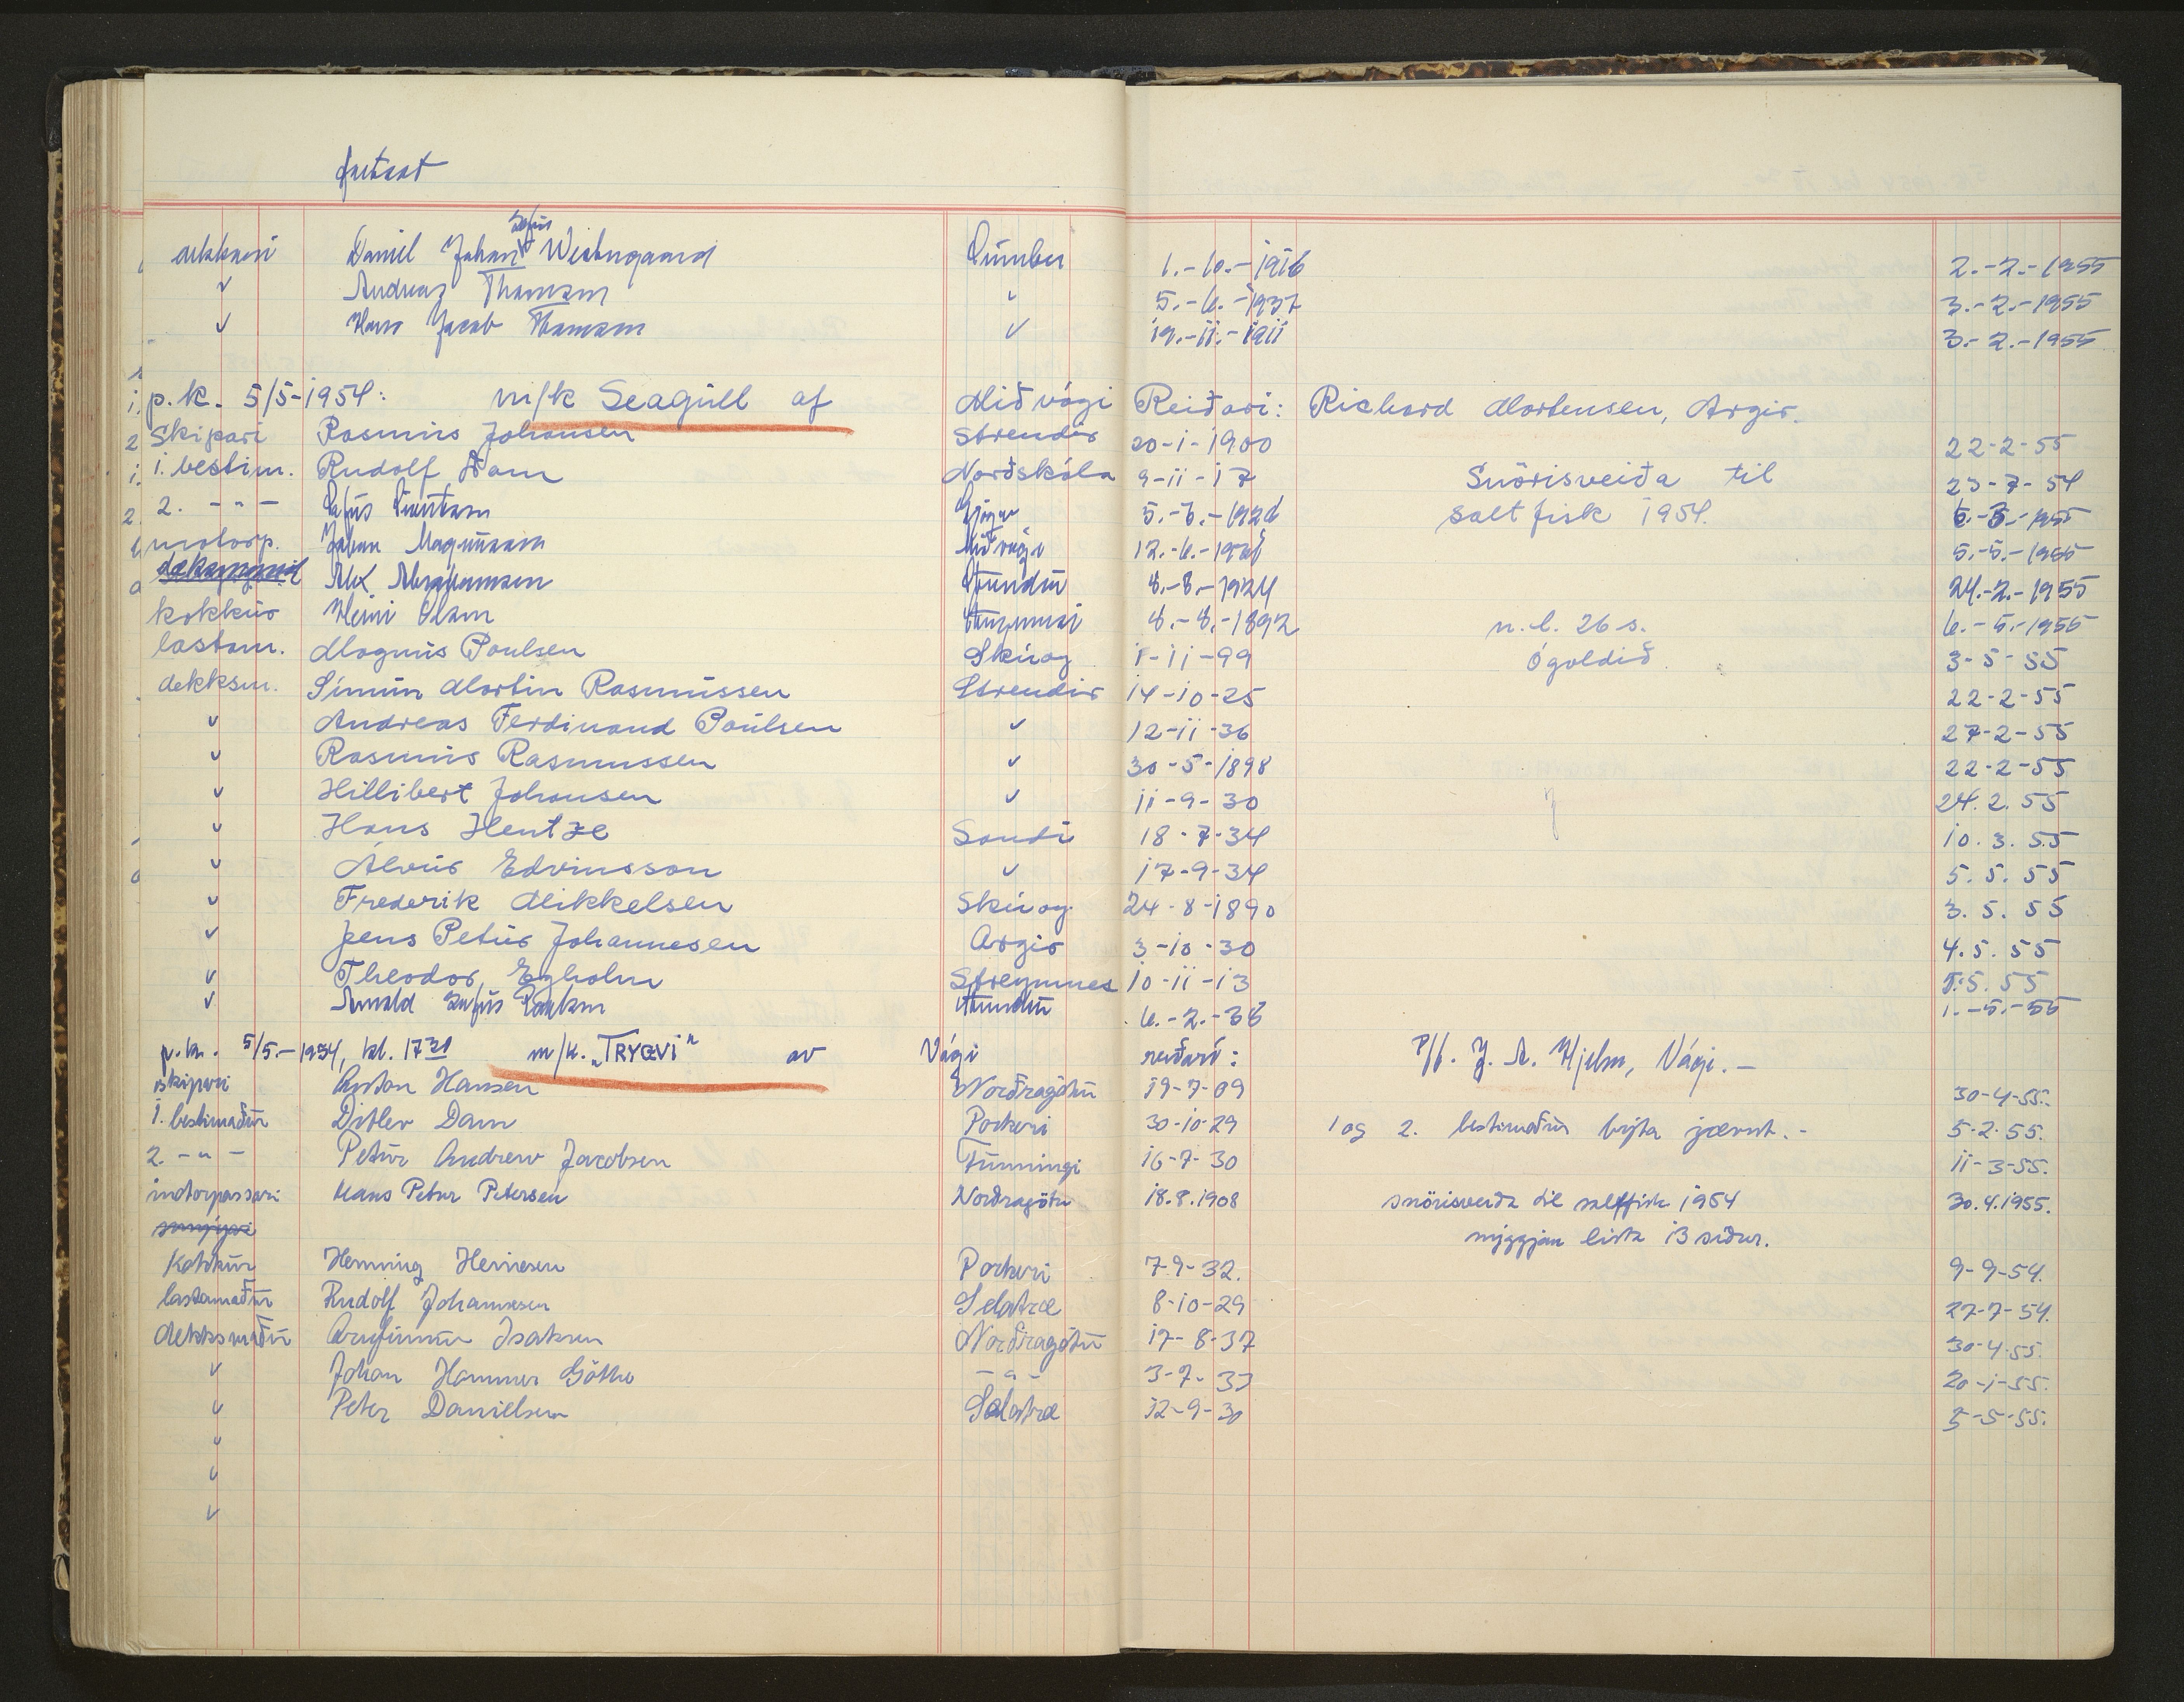 dekkari Daniel Johan Westergaard 1.-10.-1916 2.-2.-1955
✓ Andreas Thomsen ✓ 5.-6.-1937 3.-2.-1955
✓ Hans Jacob Thomsen ✓ 19.-11.-1911 3.-2.-1955
p.k. 5/5-1954: m/k Seagull af Miðvági Reiðari: Richard Mortensen, Argir.
Skipari Rasmus Johansen Strendir 20-1-1900 22-2-55
1. bestim. Rudolf Dam Norðskála 9-11-17 Snörisveiða til 23-7-54
2. -"- Gjógv 5.-3.-1926 saltfisk 1954. 1955
motorp. Johan Magnussen Miðvági 12.-6.- 5.-5.-1955
Alex Abrahamsen Strendur 8.-8.-1924 24.-2.-1955
kokkur Heini Olsen 8.-8.-1892 n.l. 26 s. 6.-5.-1955
lastam. Magnus Poulsen Skúog 1-11-99 ógoldið 3-5-55
dekksm. Símun Martin Rasmussen Strendir 14-10-25 22-2-55
✓ Andreas Ferdinand Poulsen ✓ 12-11-36 27-2-55
✓ Rasmus Rasmussen ✓ 30-5-1898 22-2-55
✓ Hillibert Johansen ✓ 11-9-30 24.2.55
✓ Hans Hentze Sandi 18-7-34 10.3.55
✓ Álvur Edvinsson ✓ 17-9-34 5.5.55
✓ Frederik Mikkelsen Skúog 24-8-1890 3.5.55
✓ Jens Petur Johannesen Argir 3-10-30 4.5.55
✓ Theodor Egholm Streymnes 10-11-13 5.5.55
✓ Arnold Poulsen Strendur 6.-2.-38 1.-5.-55
p.k. 5/5.-1954, kl. 17 30 m/k. "TRYGVI" av Vági reiðarí: P/f. J. A. Hjelm, Vági.-
skipari Anton Hansen Norðragøtu 19-7-09 30-4-55.
1. bestimaður Ditlev Dam Porkeri 30-10-29 1 og 2. bestimaður býta javnt.- 5-2-55.
2. -"- Petur Andrew Jacobsen Funningi 16-7-30 11-3-55.
motorpassari Hans Petur Petersen Norðragøtu 18.8.1908 snörisveiða til saltfisk 1954 30.4.1955.
nýggjan lista 13 síður.
Kokkur Henning Heinesen Porkeri 7-9-32. 9-9-54.
lastamaður Rudolf Johannesen Selatræ 8-10-29 27-7-54.
dekksmaður Arnfinnur Isaksen Norðragøtu 17-8-37 30-4-55.
✓ Johan Hammer Göthe -"- 3-7-33 20-1-55.
✓ Peter Danielsen Selatræ 12-9-30 5-5-55.
✓
✓
✓